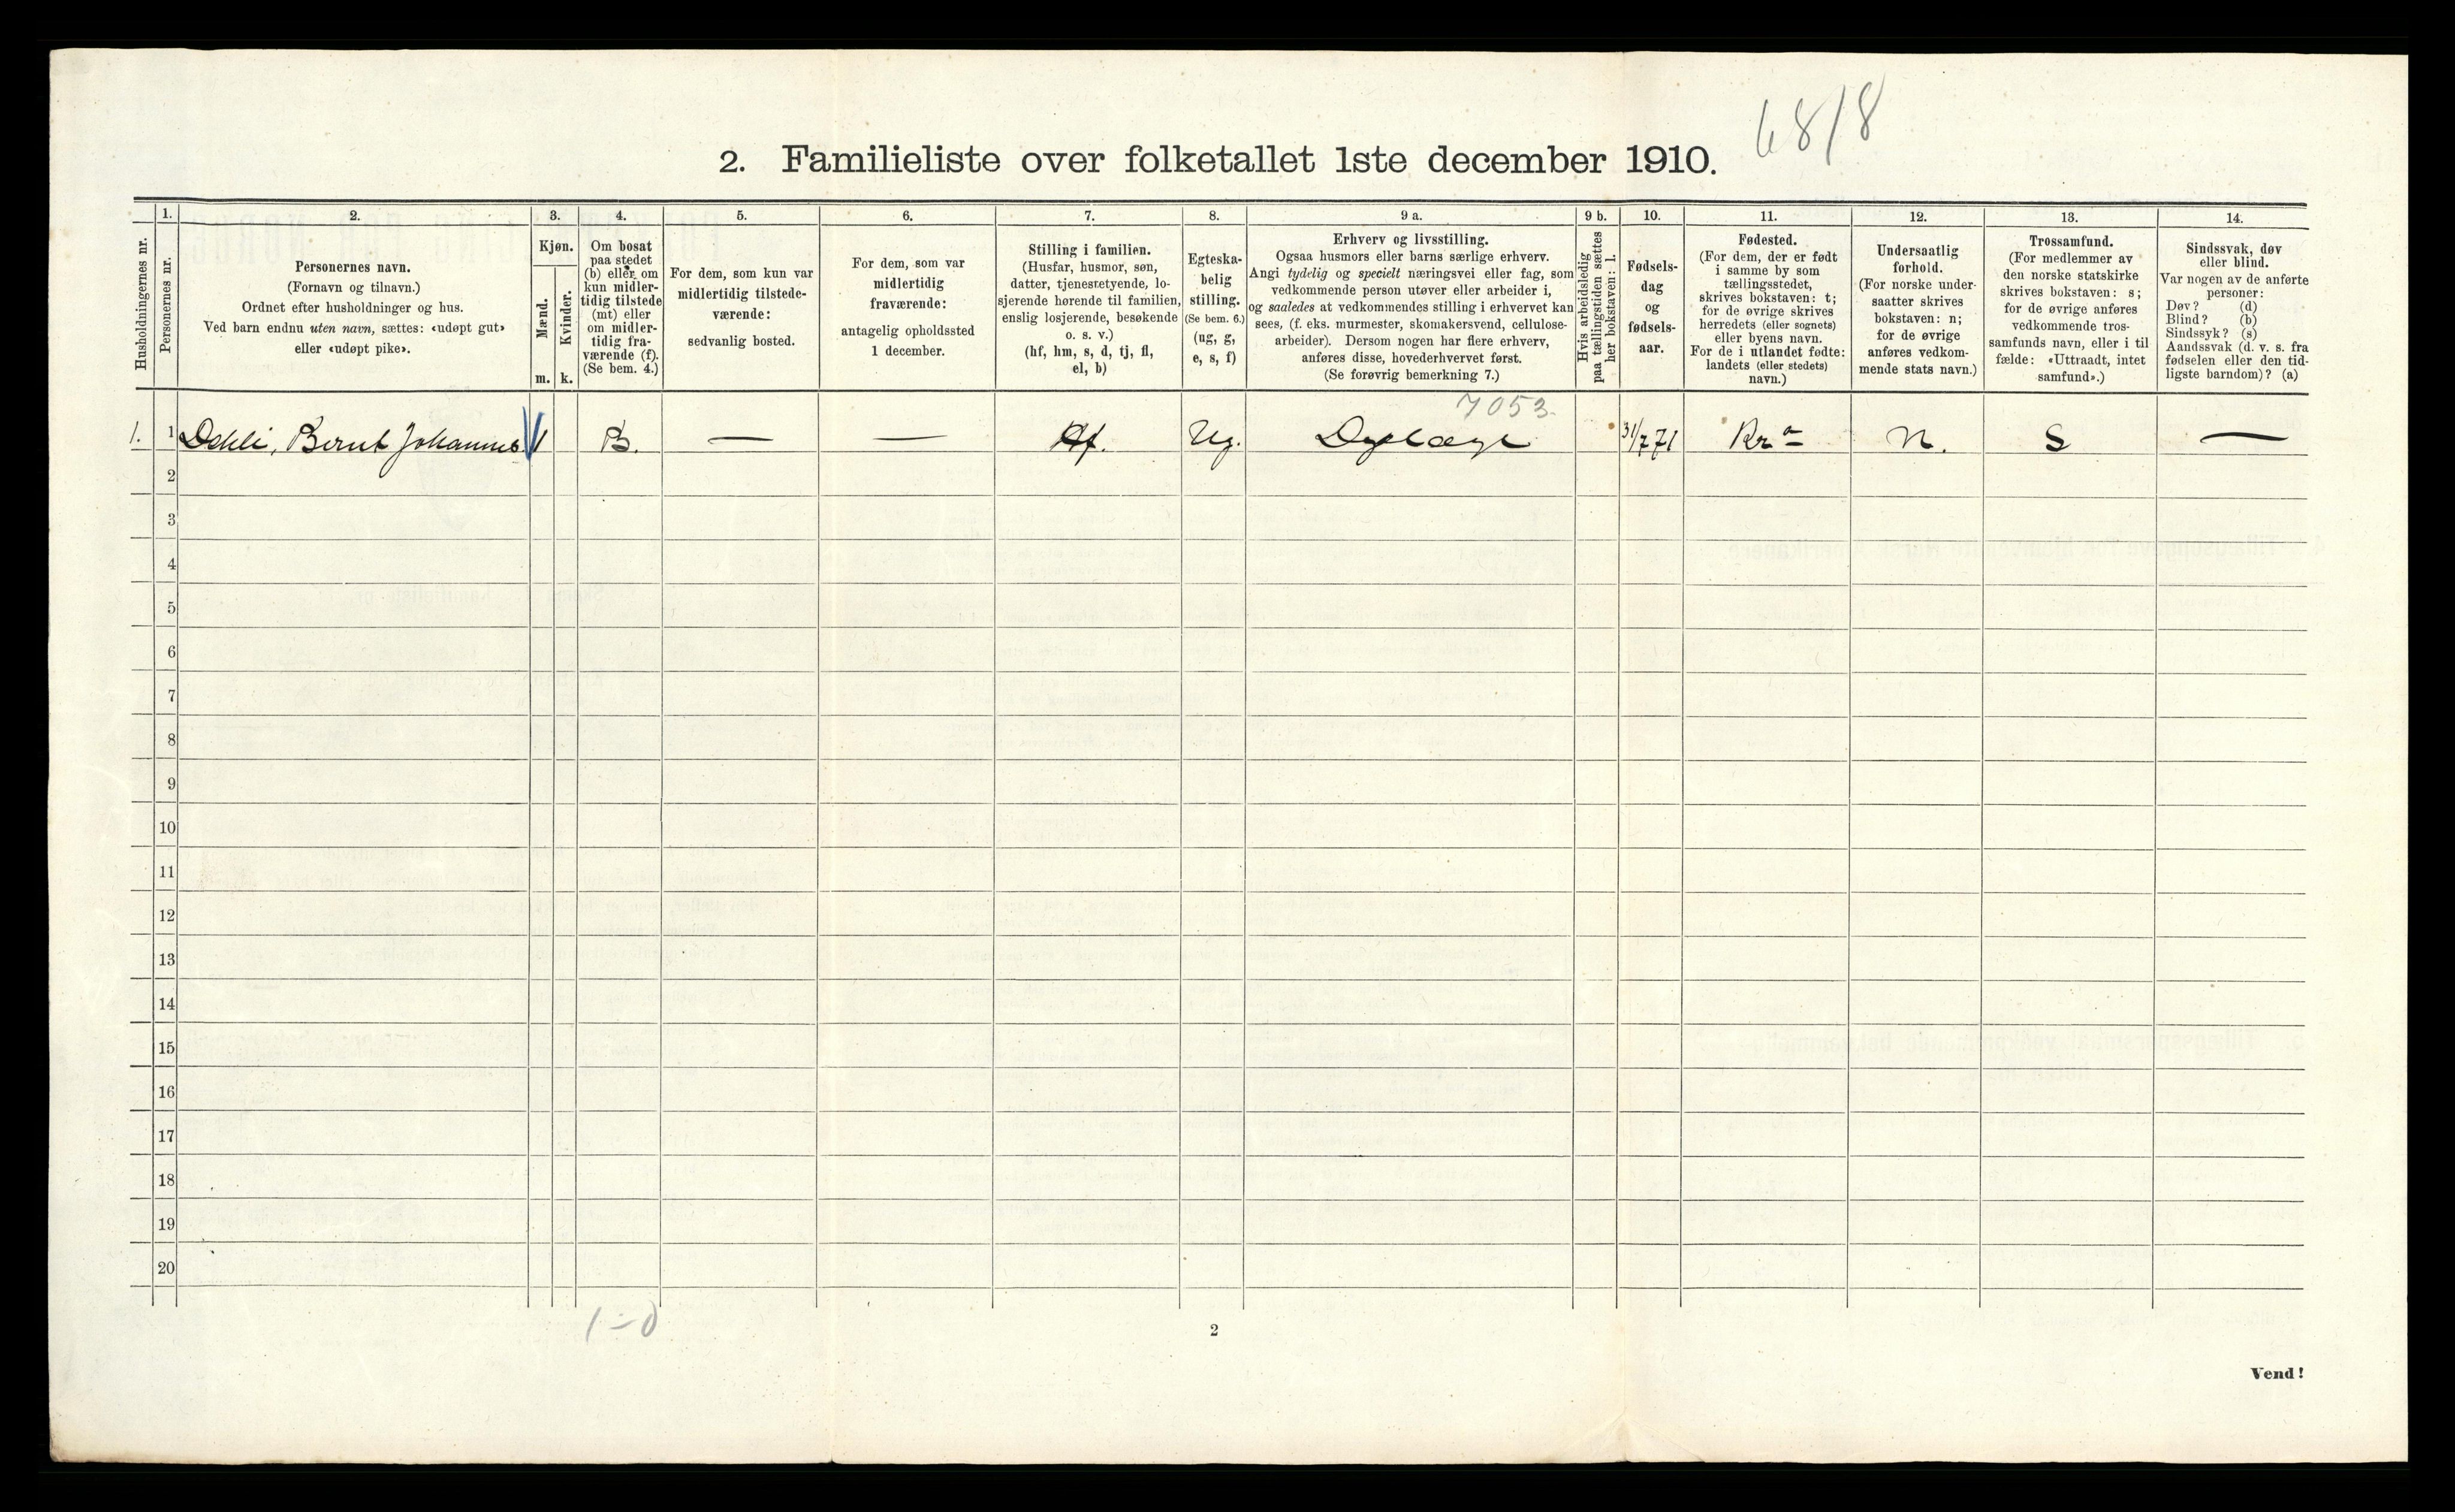 6818
2. Familieliste over folketallet 1ste december 1910.
Husholdningernes nr.
1.
Personernes nr.
2.
Personernes navn.
(Fornavn og tilnavn.)
Ordnet efter husholdninger og hus.
Ved barn endnu uten navn, sættes: «udøpt gut»
eller «udøpt pike».
3.
Kjøn.
Mænd.
m.
Kvinder.
k.
4.
Om bosat
paa stedet
(b) eller om
kun midler-
tidig tilstede
(mt) eller
om midler-
tidig fra-
værende (f).
(Se bem. 4.)
5.
For dem, som kun var
midlertidig tilstede-
værende:
sedvanlig bosted.
6.
For dem, som var
midlertidig
fraværende:
antagelig opholdssted
1 december.
7.
Stilling i familien.
(Husfar, husmor, søn,
datter, tjenestetyende, lo-
sjerende hørende til familien,
enslig losjerende, besøkende
o. s. v.)
(hf, hm, s, d, tj, fl,
el, b)
8.
Egteska-
belig
stilling.
(Se bem. 6.)
(ug, g,
e, s, f)
9 a.
Erhverv og livsstilling.
Ogsaa husmors eller barns særlige erhverv.
Angi tydelig og specielt næringsvei eller fag, som
vedkommende person utøver eller arbeider i,
og saaledes at vedkommendes stilling i erhvervet kan
sees, (f. eks. murmester, skomakersvend, cellulose-
arbeider). Dersom nogen har flere erhverv,
anføres disse, hovederhvervet først.
(Se forøvrig bemerkning 7.)
9 b.
Hvis arbeidsledig
paa tællingstiden sættes
her bokstaven: l.
10.
Fødsels-
dag
og
fødsels-
aar.
11.
Fødested.
(For dem, der er født
i samme by som
tællingsstedet,
skrives bokstaven: t;
for de øvrige skrives
herredets (eller sognets)
eller byens navn.
For de i utlandet fødte:
landets (eller stedets)
navn.)
12.
Undersaatlig
forhold.
(For norske under-
saatter skrives
bokstaven: n;
for de øvrige
anføres vedkom-
mende stats navn.)
13.
Trossamfund.
(For medlemmer av
den norske statskirke
skrives bokstaven: s;
for de øvrige anføres
vedkommende tros-
samfunds navn, eller i til
fælde: «Uttraadt, intet
samfund».)
14.
Sindssvak, døv
eller blind.
Var nogen av de anførte
personer:
Døv? (d)
Blind? (b)
Sindssyk? (s)
Aandssvak (d. v. s. fra
fødselen eller den tid-
ligste barndom)? (a)
7053.
1. 1 Dehli, Bernt Johannes 1 B. — — Hf. Ug. Dyrlæge 31/7 71 Kra N. S —
2
3
4
5
6
7
8
9
10
11
12
13
14
15
16
17
18
19
20
1-0
2
Vend!